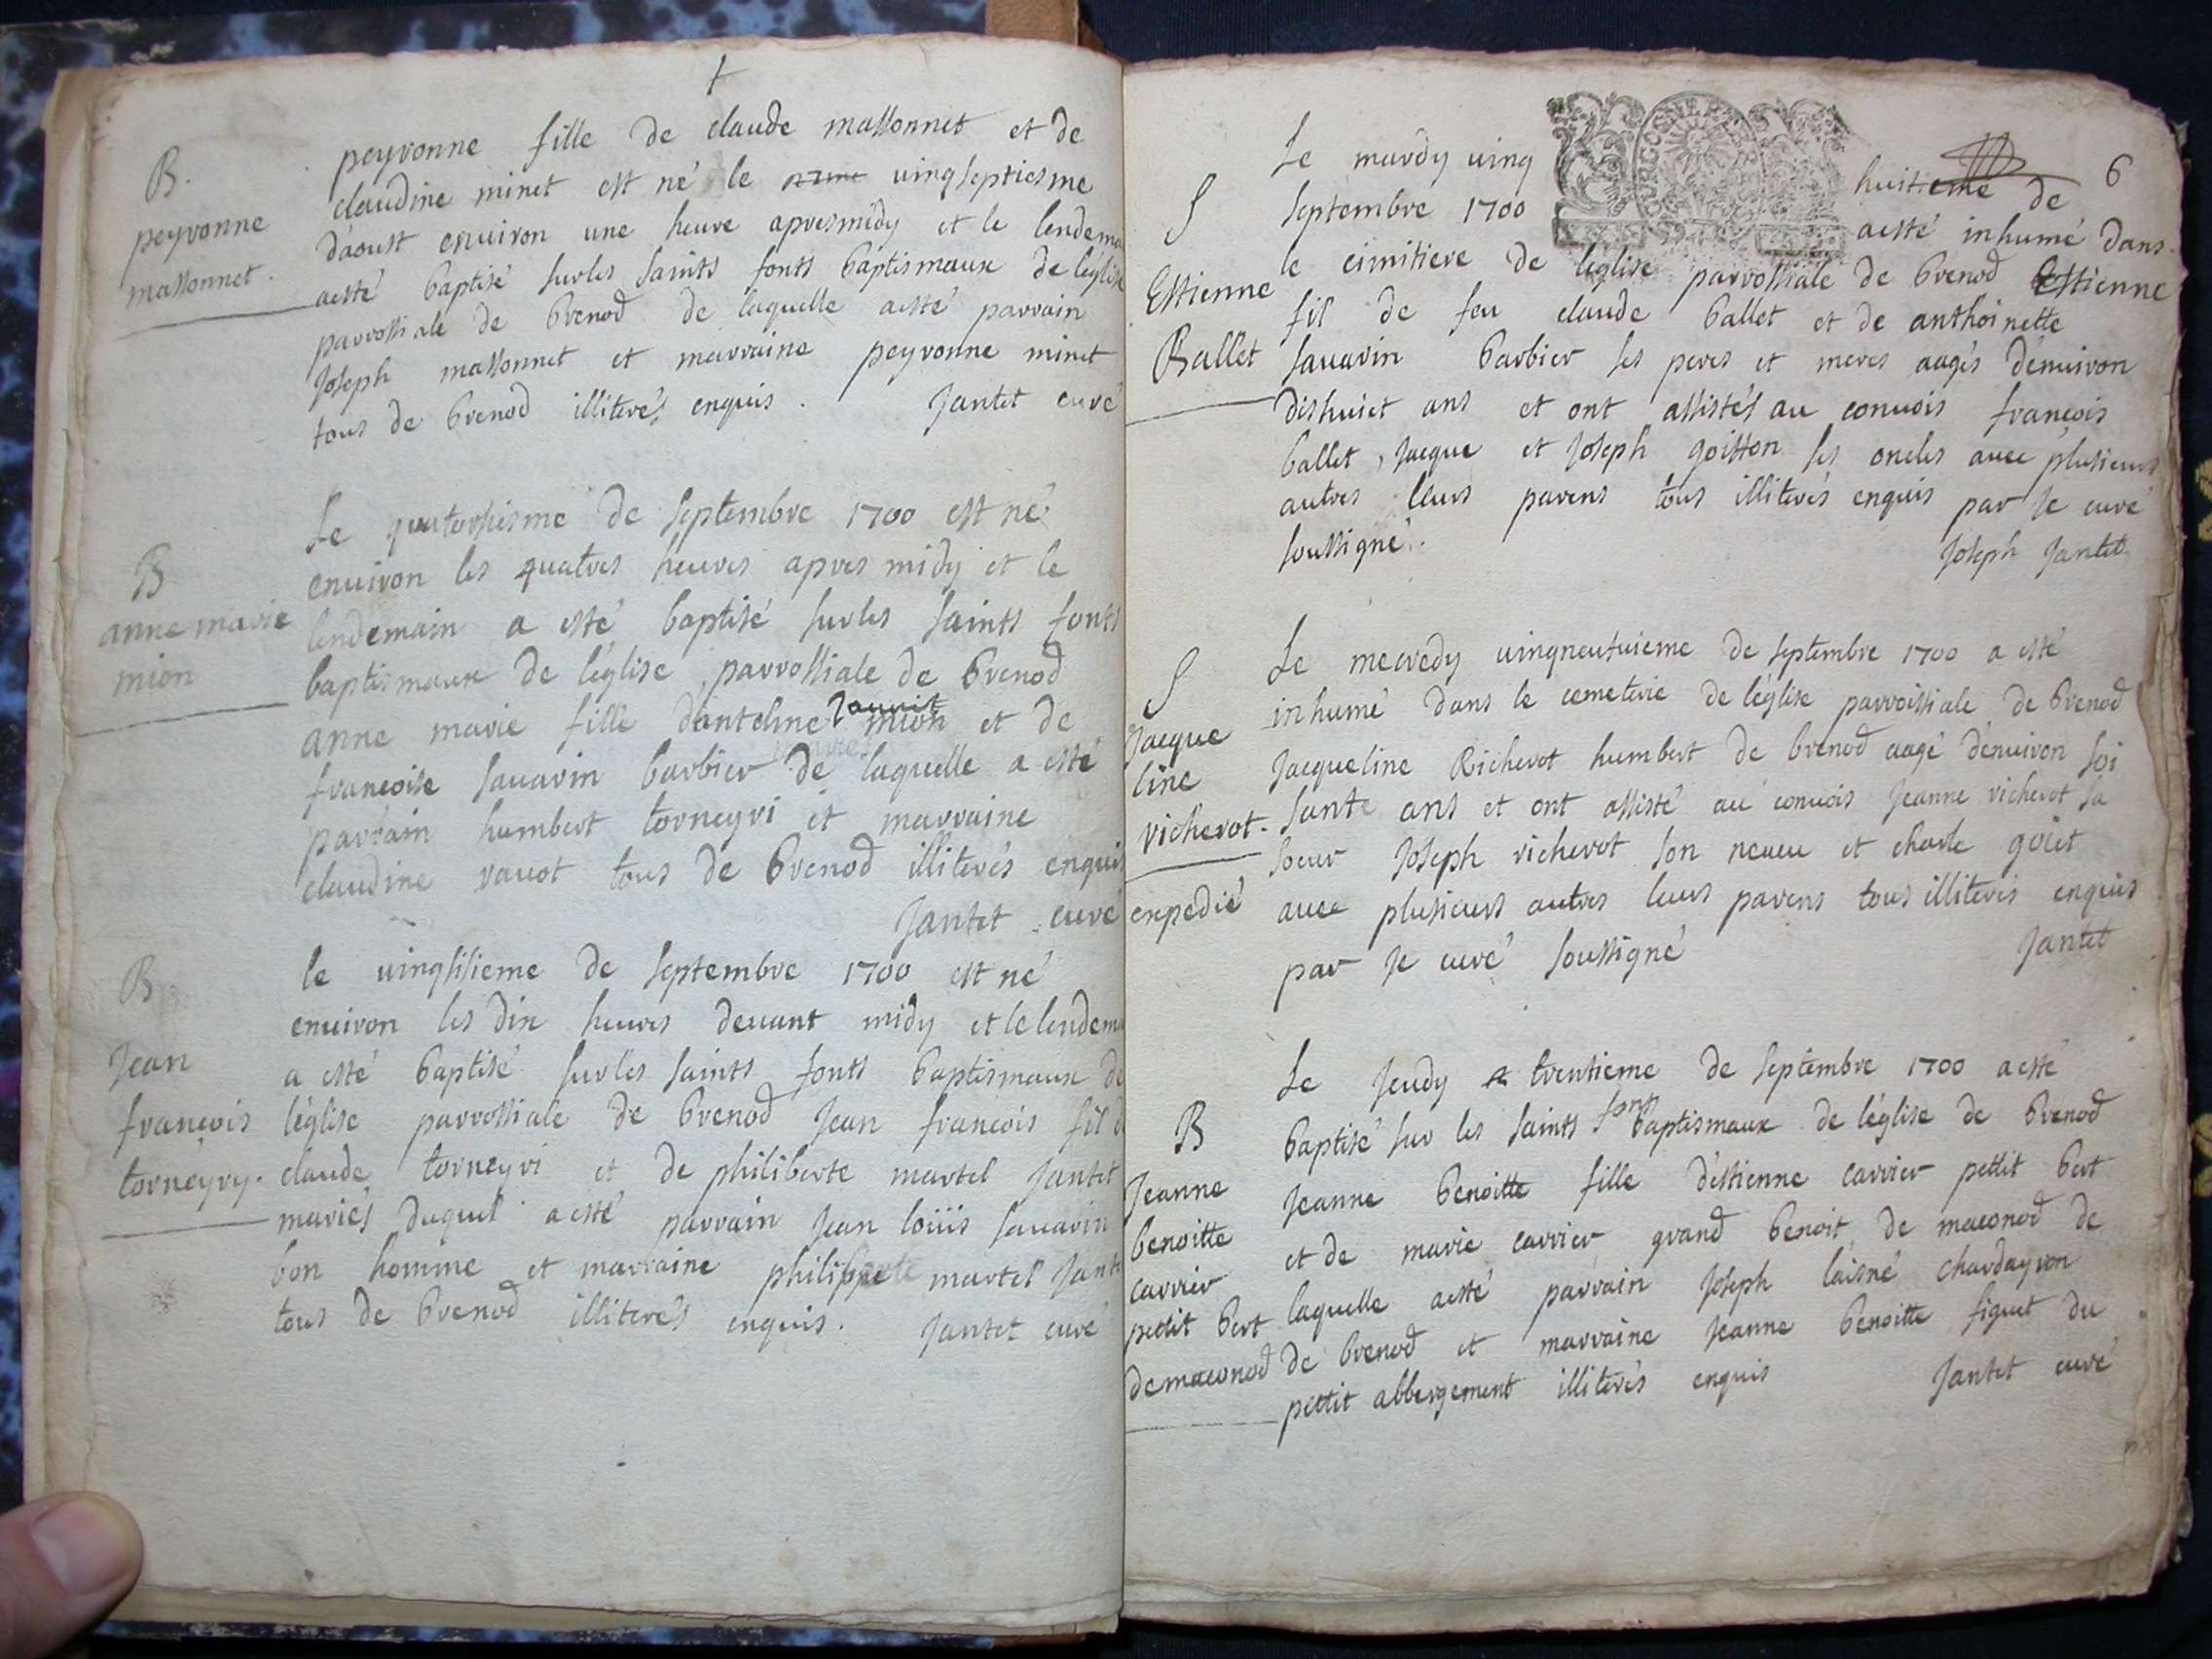 B.
peyronne
massonnet.
peyronne fille de claude massonnet et de
claudine minet est né le vingseptiesme
d'aoust environ une heure apresmidy et le lendema
aesté baptisé surles saints fonts baptismaux de léglise
parrossiale de brenod de laquelle aesté parrain
Joseph massonnet et marraine peyronne minet
tous de brenod illiterés enquis. Jantet curé
B
anne marie
mion
Le quatorsiesme de septembre 1700 est né
environ les quatres heures apres midy et le
lendemain a esté baptisé surles saints fonts
baptismaux de léglise parrossiale de brenod
anne marie fille dantelme Jannit mion et de
francoise savarin barbier de laquelle a esté
parrain humbert torneyri et marraine
claudine vauot tous de brenod illiterés enquis
Jantet curé
B
Jean
francois
torneyry.
le vingsisieme de septembre 1700 est né
environ les dix heures devant midy et le lendema
a esté baptisé surles saints fonts baptismaux de
léglise parrossiale de brenod Jean francois fil d
claude torneyri et de philiberte martel Jantet
mariés duquel aesté parrain Jean loüis savarin
bon homme et marraine martel Jante
tous de brenod illiterés enquis. Jantet curé
6
S
Estienne
Ballet
Le mardy ving huitieme de
septembre 1700 aesté inhumé dans
le cimitiere de léglise parrossiale de brenod Estienne
fil de feu claude ballet et de anthoinette
savarin barbier ses peres et meres aagés dénviron
dishuict ans et ont assistés au convois francois
ballet, Jacque et Joseph goitton ses oncles avec plusieurs
autres leurs parens tous illiterés enquis par Je curé
soussigné. Joseph Jantet
S
Jacque
line
richerot.
expedié
Le mecredy vingneufuieme de septembre 1700 a esté
inhumé dans le cemeterie de léglise parroissiale de brenod
Jacqueline Richerot humbert de brenod aagé dénviron soi
sante ans et ont assisté au convois Jeanne richerot sa
soeur Joseph richerot son neveu et charle goiet
avec plusieurs autres leurs parens tous illiterés enquis
par Je curé soussigné Jantet
B
Jeanne
benoitte
carrier
pettit bert
demaconod
Le Jeudy trentieme de septembre 1700 aesté
baptisé sur les saints fons baptismaux de léglise de brenod
Jeanne benoitte fille déstienne carrier pettit bert
et de marie carrier grand benoit de maconod de
laquelle aesté parrain Joseph laisné chardayron
de brenod et marraine Jeanne benoitte figuet du
pettit abbergement illiterés enquis Jantet curé